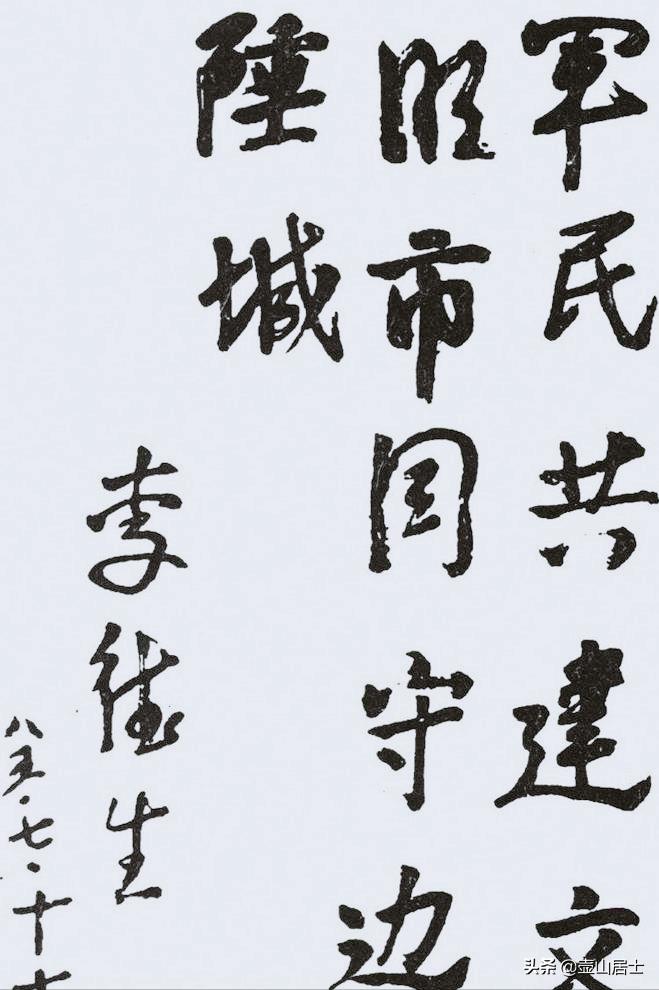 军民共建文
明市同守边
陲城
李德生
八五·七·十
头条 @壶山居士